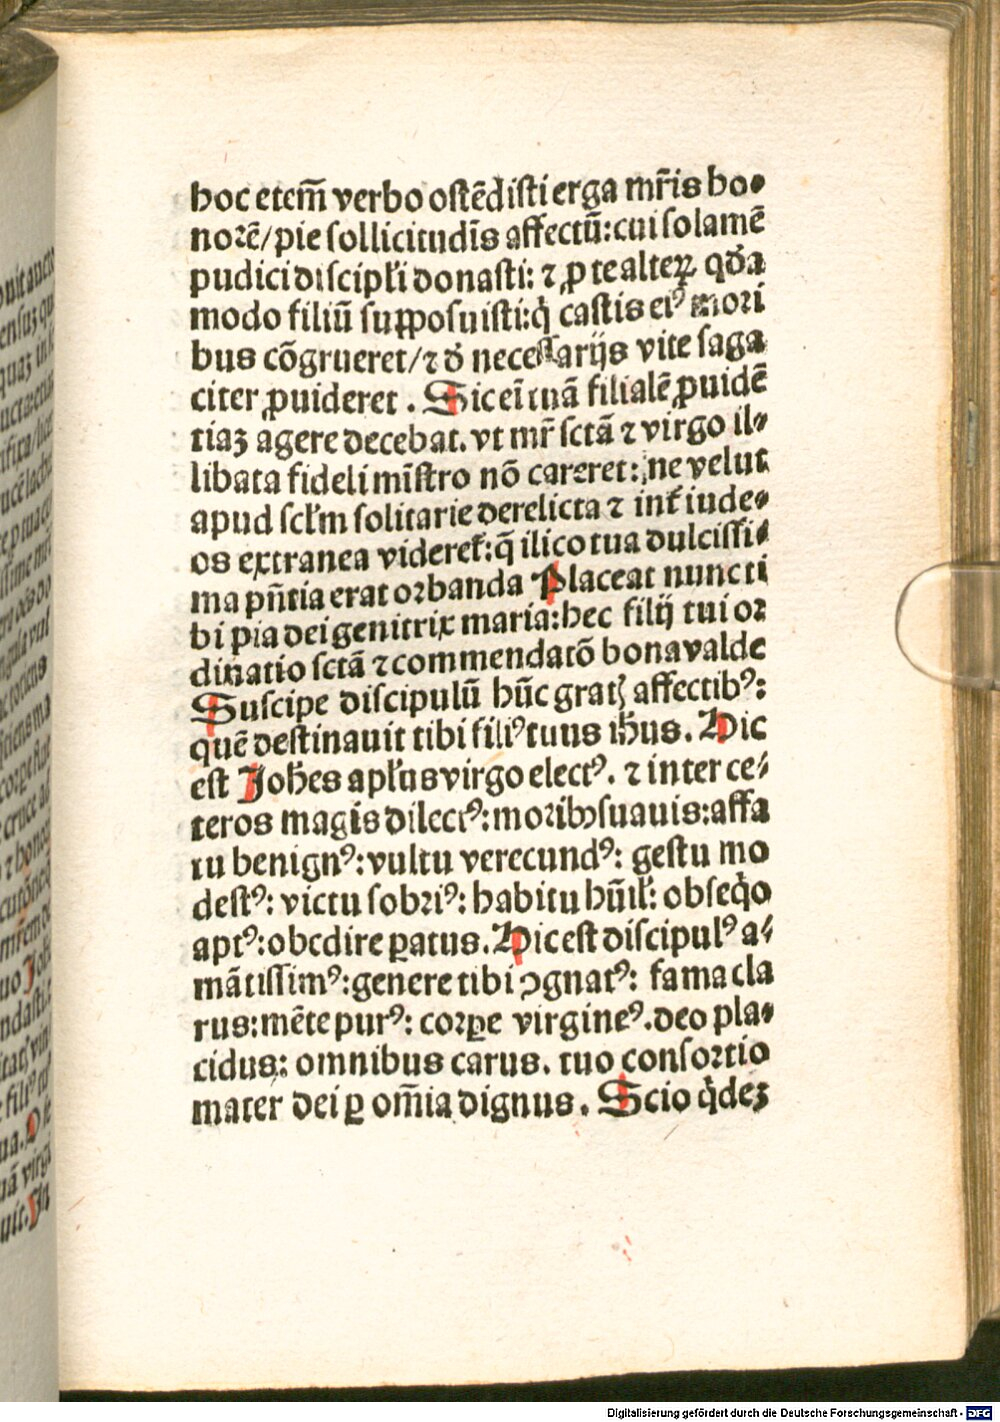 hoc etem̄ verbo ostēdisti erga mr̄is ho⸗
norē/ pie sollicitudīs affectū: cui solamē
pudici discipl̄i donasti: ⁊ ꝓ te alteꝝ qḋā
modo filiū supposuisti: q̇ castis eiꝰ mori
bus cōgrueret/ ⁊ ꝺ̄ necessarijs vite saga
citer ꝓuideret. Sic eī tuā filialē ꝓuidē
tiaꝫ agere decebat. vt mr̄ sctā ⁊ virgo il⸗
libata fideli mīstro nō careret: ne velut
apud scl̄m solitarie derelicta ⁊ int̄ iude⸗
os extranea videret̄: q̄ ilico tua dulcissi⸗
ma pn̄tia erat orbanda Placeat nunc ti
bi pia dei genitrix maria: hec filij tui or
dinatio sctā ⁊ commendatō bona valde
Suscipe discipulū hūc gratꝭ affectibꝰ:
quē destinauit tibi filiꝰ tuus ih̄us. Hic
est Joh̄es apl̄us virgo electꝰ. ⁊ inter ce⸗
teros magis dilectꝰ: moribꝫ suauis: affa
tu benignꝰ: vultu verecundꝰ: gestu mo
destꝰ: victu sobriꝰ: habitu hūil̄: obseq̇o
aptꝰ: obedire ꝑatus. Hic est discipulꝰ a⸗
mātissimꝰ: genere tibi ꝯgnatꝰ: fama cla
rus: mēte purꝰ: corꝑe virgineꝰ. deo pla⸗
cidus: omnibus carus. tuo consortio
mater dei ꝑ om̄ia dignus. Scio q̇deꝫ
Digitalisierung gefördert durch die Deutsche Forschungsgemeinschaft - DFG